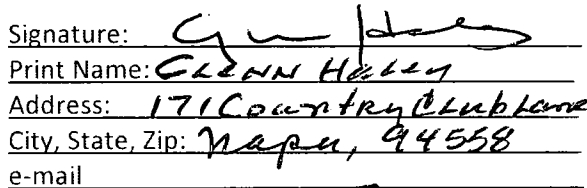 Signature: Glenn Haley
Print Name: GLENN HALEY
Address: 171 Country Club Lane
City, State, Zip: Napa, 94558
e-mail